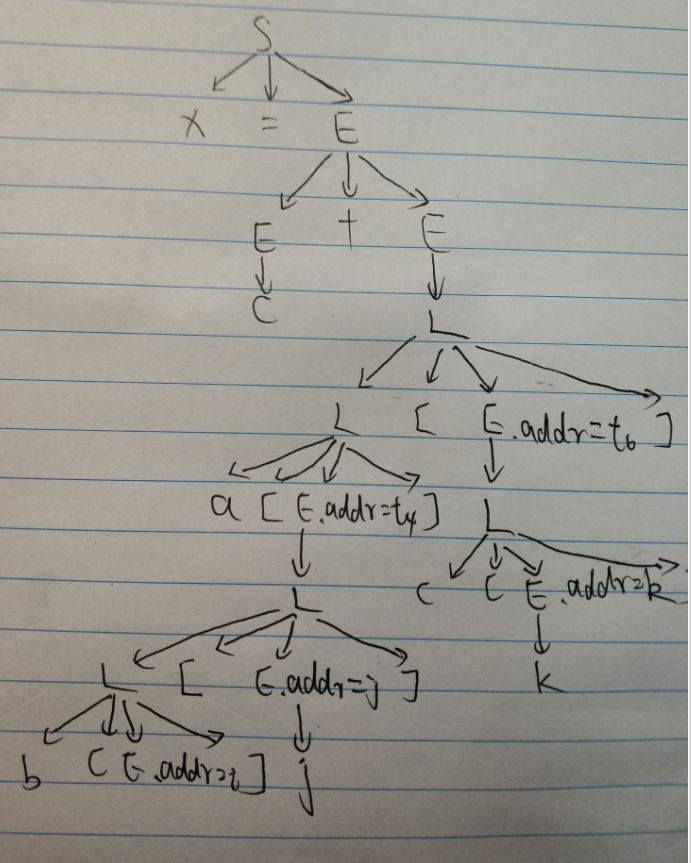 S
x = E
E + E
C
L
L [ E.addr=t6 ]
a [ E.addr=t4 ] L
L c [ E.addr=k
L [ E.addr=j ] k
b [ E.addr= ] j